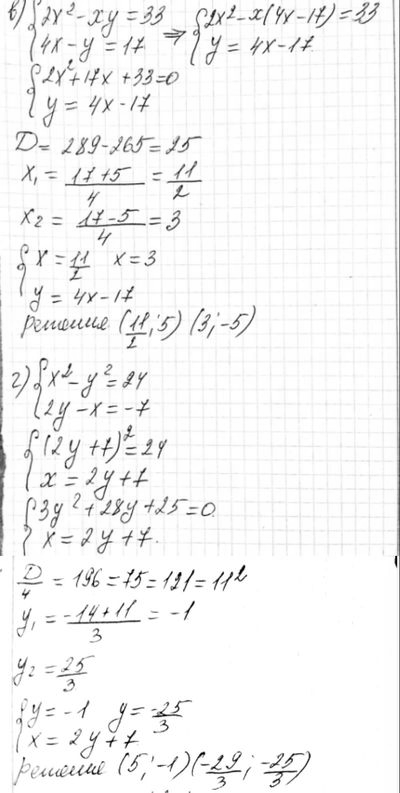 в) {2x² - xy = 33 ⇒ {2x² - x(4x - 17) = 33
{4x - y = 17 {y = 4x - 17
{2x² + 17x + 33 = 0
{y = 4x - 17
D = 289 - 265 = 25
x₁ = (17 + 5)/4 = 11/2
x₂ = (17 - 5)/4 = 3
{x = 11/2 x = 3
{y = 4x - 17
решение (11/2; 5) (3; -5)
г) {x² - y² = 24
{2y - x = -7
{(2y + 7)² = 24
{x = 2y + 7
{3y² + 28y + 25 = 0
{x = 2y + 7.
D/4 = 196 = 75 = 121 = 11²
y₁ = (-14 + 11)/3 = -1
y₂ = 25/3
{y = -1 y = -25/3
{x = 2y + 7
решение (5; -1) (-29/3; -25/3)